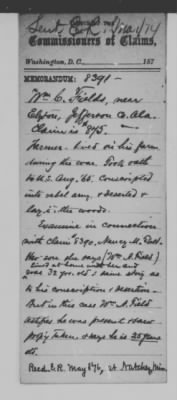 Sent E.R. 1/74
Commissioners of Claims,
Washington, D. C., 187
MEMORANDUM: 8391 -
Wm C. Fields, near
Elyton, Jefferson Co. Ala.
Claim is 875. -
Farmer. Lived on his farm
during the war. Took oath
to U.S. Aug. '65. Conscripted
into rebel army & deserted &
lay in the woods.
Examine in connection
with Claim 8390, Nancy M.
Her son she says (Wm A. Field)
lived at home with her and
was 32 yrs. old & same story as
to his conscription & desertion. -
But in this case Wm A. Field
testifies he was present & saw
property taken & says he is 25 years
old.
Recd. E.R. May 1876, at